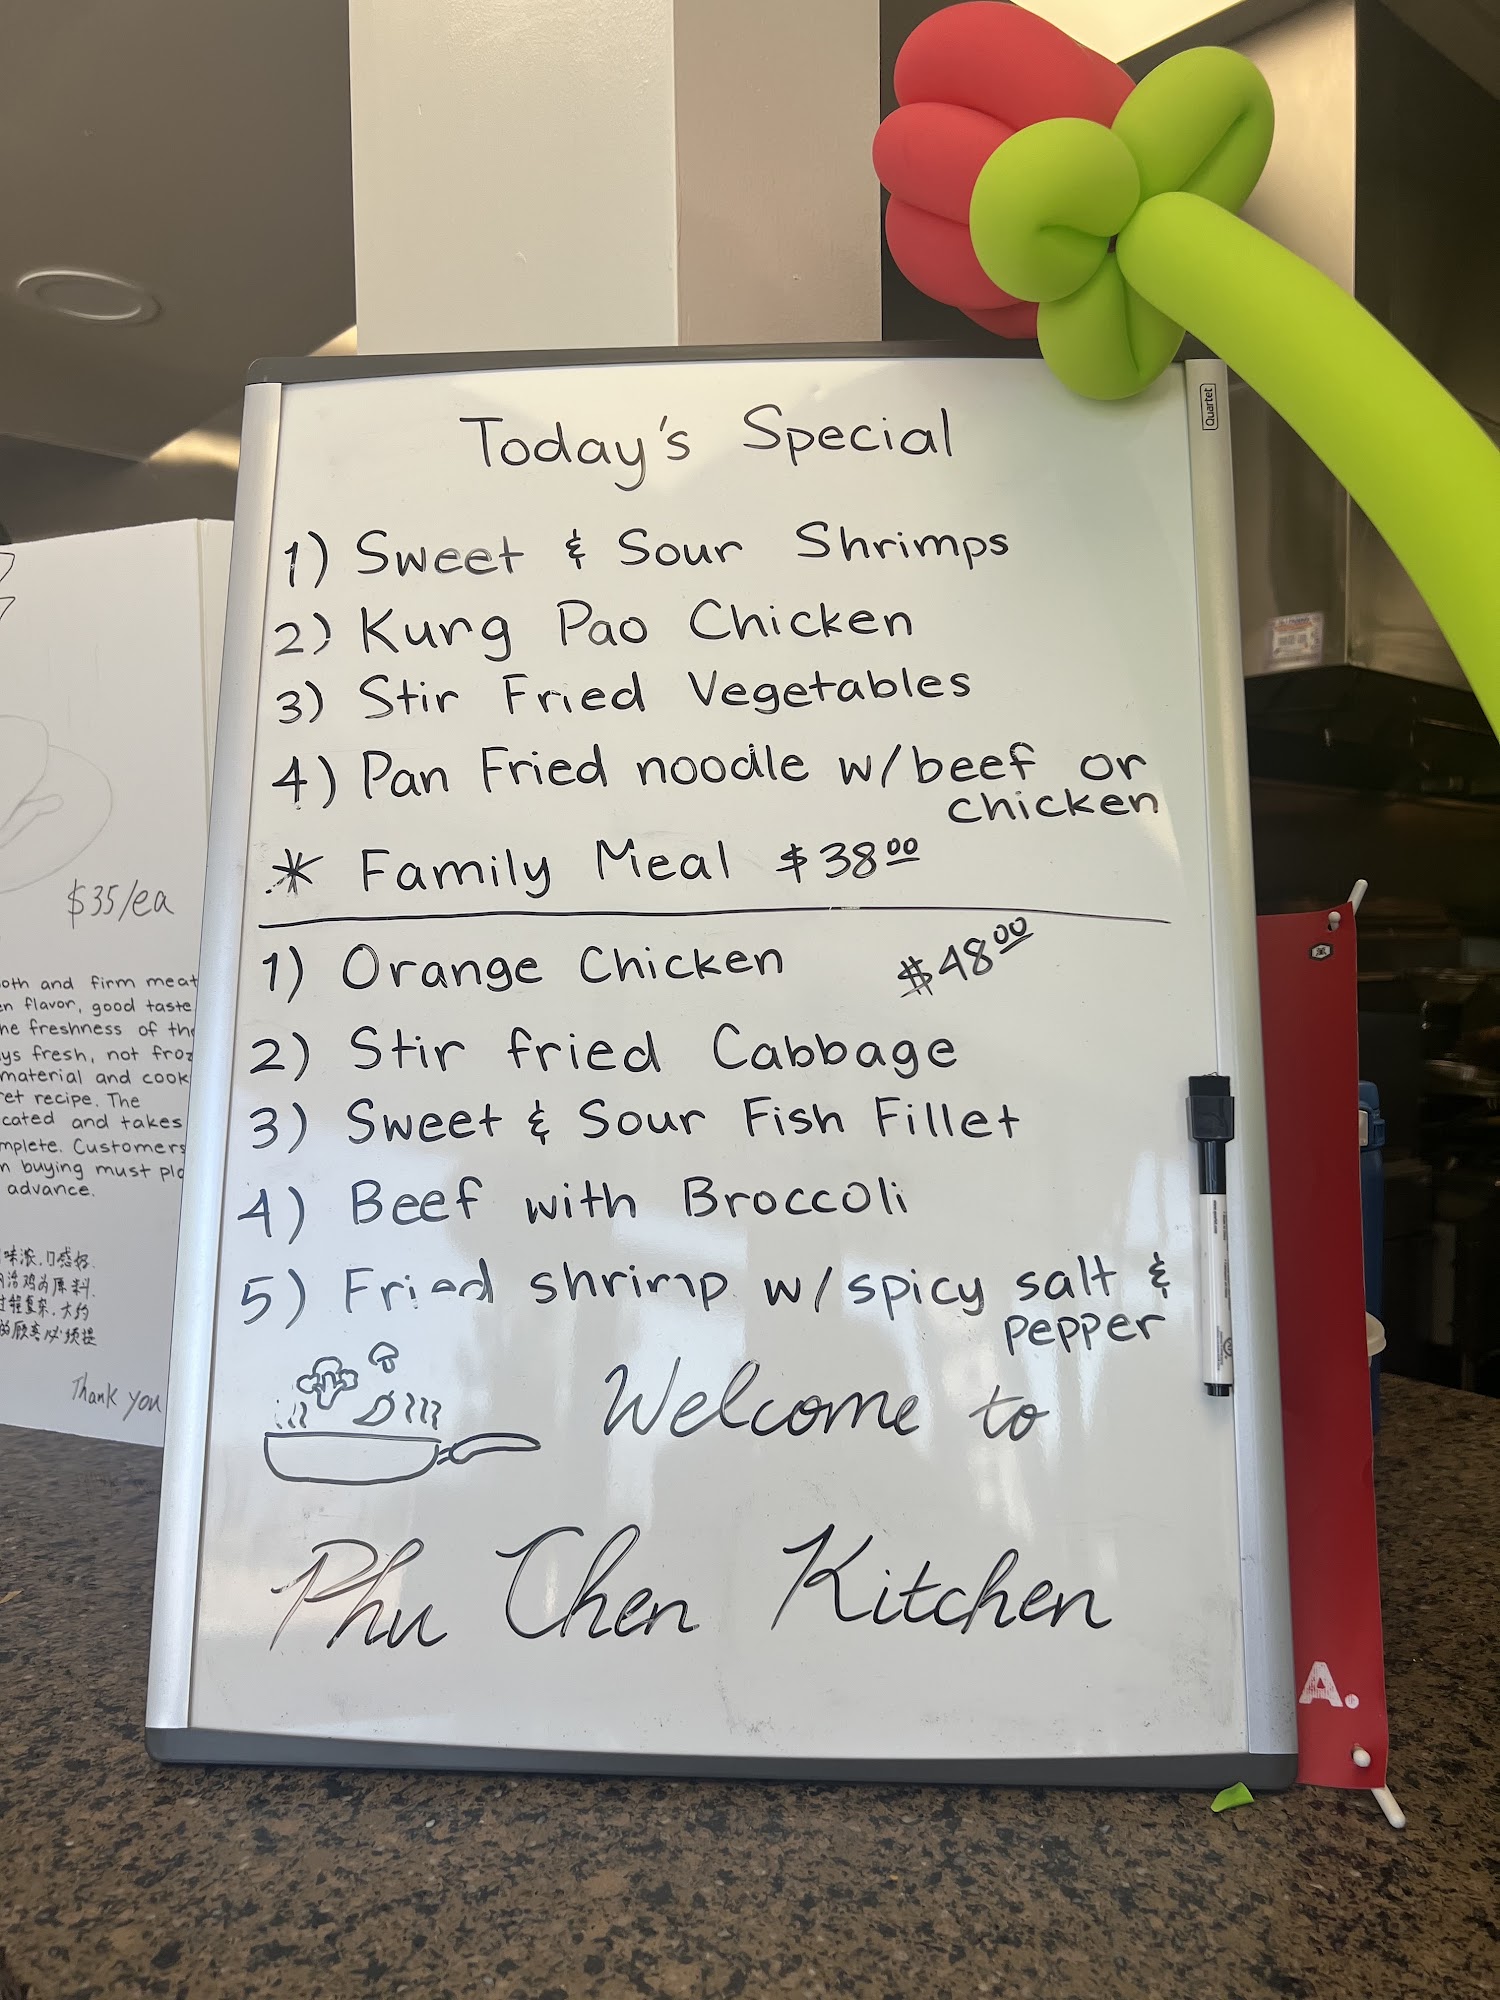 Today's Special
1) Sweet & Sour Shrimps
2) Kung Pao Chicken
3) Stir Fried Vegetables
4) Pan Fried noodle w/beef or
chicken
* Family Meal $38.00
1) Orange Chicken $48.00
2) Stir fried Cabbage
3) Sweet & Sour Fish Fillet
4) Beef with Broccoli
5) Fried shrimp w/spicy salt &
pepper
Welcome to
Phu Chen Kitchen
Quartet
$35/ea
oth and firm meat
en flavor, good taste
he freshness of the
ys fresh, not froz
material and cook
ret recipe. The
cated and takes
mplete. Customers
n buying must pla
advance.
味浓,口感好.
鸡为原料.
过程复杂,大约
的顾客必须提
Thank you
A.